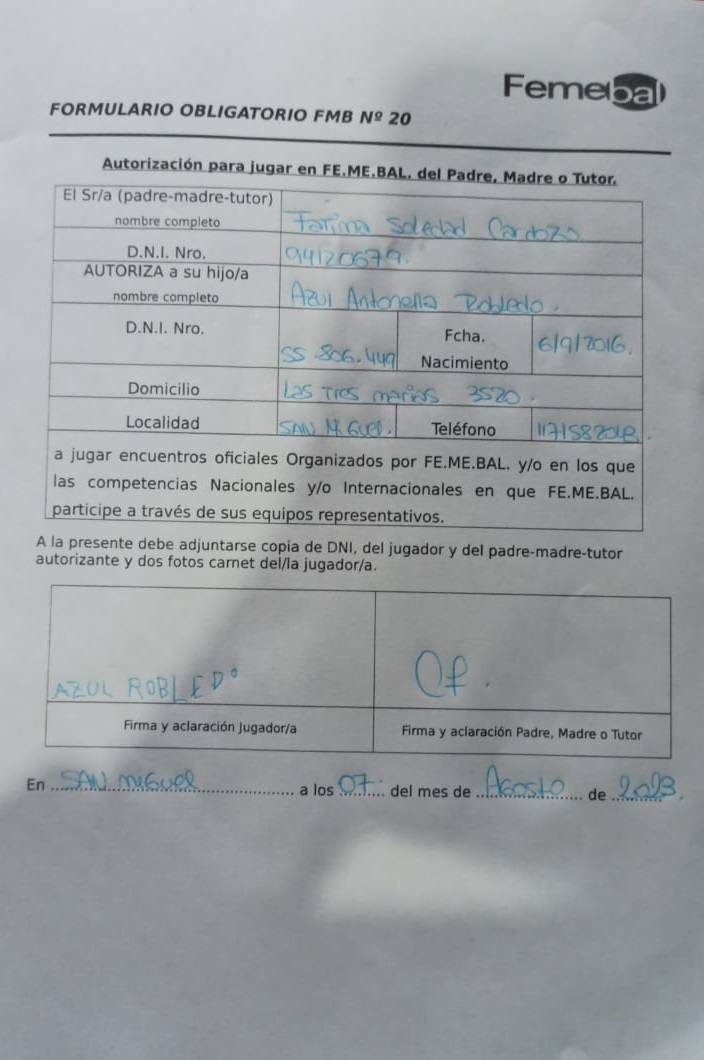 Femebal
FORMULARIO OBLIGATORIO FMB Nº 20
Autorización para jugar en FE.ME.BAL. del Padre, Madre o Tutor.
El Sr/a (padre-madre-tutor)
nombre completo Fatima Soledad Cardozo
D.N.I. Nro. 94120679.
AUTORIZA a su hijo/a
nombre completo Azul Antonella Robledo.
D.N.I. Nro. 55.806.449 Fcha. Nacimiento 6/9/2016.
Domicilio Las Tres marias 3520.
Localidad SAN MiGuel. Teléfono
a jugar encuentros oficiales Organizados por FE.ME.BAL. y/o en los que
las competencias Nacionales y/o Internacionales en que FE.ME.BAL.
participe a través de sus equipos representativos.
A la presente debe adjuntarse copia de DNI, del jugador y del padre-madre-tutor
autorizante y dos fotos carnet del/la jugador/a.
AZUL ROBLEDO
Firma y aclaración Jugador/a Firma y aclaración Padre, Madre o Tutor
En SAN MiGuel a los 07 del mes de Agosto de 2023.